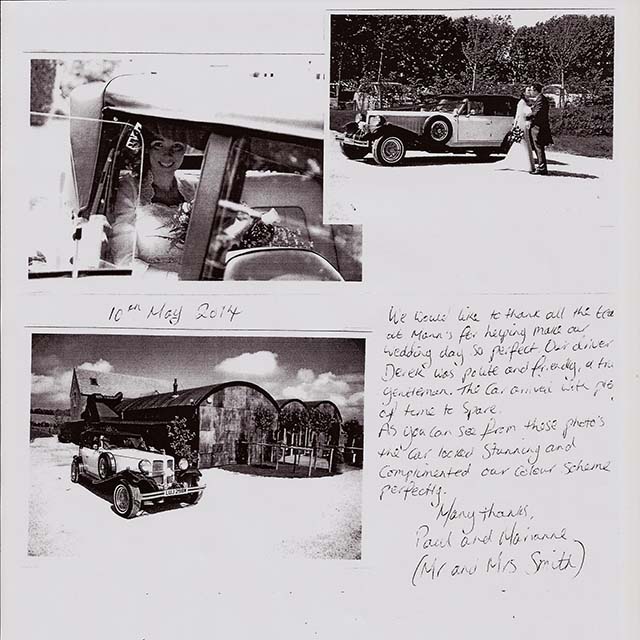 10th May 2014
We would like to thank all the
at Mann's for helping make our
wedding day so perfect. Our driver
Derek was polite and friendly, a tru
gentleman. The Car arrived with
of time to Spare.
As you can see from these photo's
the car looked Stunning and
Complimented our colour scheme
perfectly.
Many thanks,
Paul and Marianne
(Mr and Mrs Smith)